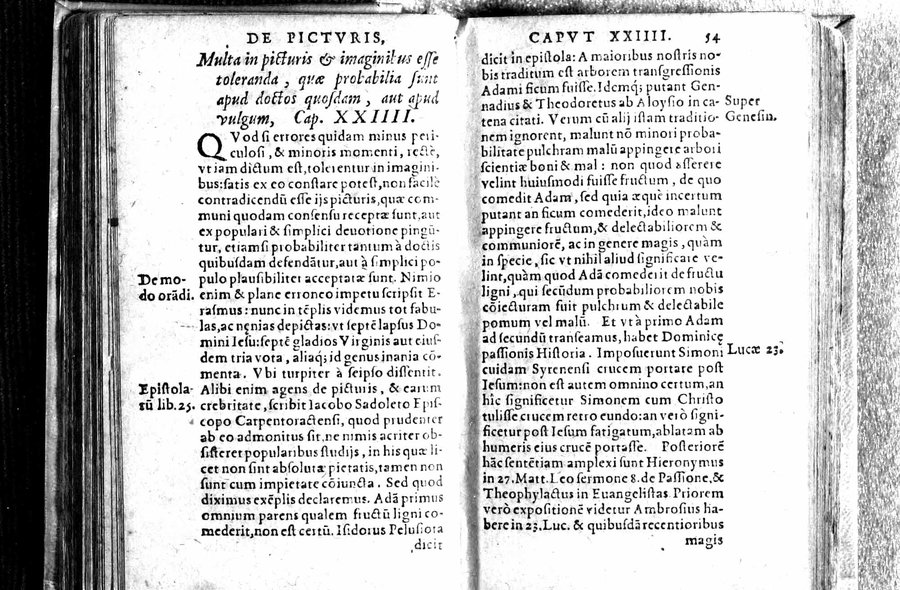 DE PICTVRIS,
Multa in picturis & imaginibus esse
toleranda, quæ probabilia sunt
apud doctos quosdam, aut apud
vulgum, Cap. XXIIII.
QVod si errores quidam minus peri-
culosi, & minoris momenti, rectè,
vt iam dictum est, tolerentur in imagini-
bus: satis ex eo constare potest, non facilè
contradicendū esse ijs picturis, quæ com-
muni quodam consensu receptæ sunt, aut
ex populari & simplici deuotione pingū-
tur, etiamsi probabiliter tantum à doctis
quibusdam defendātur, aut à simplici po-
pulo plausibiliter acceptatæ sunt. Nimio
De mo-
do orādi.
enim & plane erroneo impetu scripsit E-
rasmus: nunc in tēplis videmus tot fabu-
las, ac nenias depictas: vt septē lapsus Do-
mini Iesu: septē gladios Virginis aut eius-
dem tria vota, aliaq; id genus inania cō-
menta. Vbi turpiter à seipso dissentit.
Epistola-
rū lib. 25.
Alibi enim agens de picturis, & earum
crebritate, scribit Iacobo Sadoleto Epis-
copo Carpentoractensi, quod prudenter
ab eo admonitus sit, ne nimis acriter ob-
sisteret popularibus studijs, in his quæ li-
cet non sint absolutæ pietatis, tamen non
sunt cum impietate cōiuncta. Sed quod
diximus exēplis declaremus. Adā primus
omnium parens qualem fructū ligni co-
mederit, non est certū. Isidorus Pelusiota
dicit
CAPVT XXIIII. 54
dicit in epistola: A maioribus nostris no-
bis traditum est arborem transgressionis
Adami ficum fuisse. Idemq; putant Gen-
nadius & Theodoretus ab Aloysio in ca-
tena citati. Verum cū alij istam traditio-
Super
Genesin.
nem ignorent, malunt nō minori proba-
bilitate pulchram malū appingere arbori
scientiæ boni & mali: non quod asserere
velint huiusmodi fuisse fructum, de quo
comedit Adam, sed quia æquè incertum
putant an ficum comederit, ideo malunt
appingere fructum, & delectabiliorem &
communiorē, ac in genere magis, quàm
in specie, sic vt nihil aliud significare ve-
lint, quàm quod Adā comederit de fructu
ligni, qui secūdum probabiliorem nobis
cōiecturam fuit pulchrum & delectabile
pomum vel malū. Et vt à primo Adam
ad secundū transeamus, habet Dominicę
passionis Historia. Imposuerunt Simoni
Lucæ 23.
cuidam Syrenensi crucem portare post
Iesum: non est autem omnino certum, an
hîc significetur Simonem cum Christo
tulisse crucem retro eundo: an verò signi-
ficetur post Iesum fatigatum, ablatam ab
humeris eius crucē portasse. Posteriorē
hāc sentētiam amplexi sunt Hieronymus
in 27. Matt. Leo sermone 8. de Passione, &
Theophylactus in Euangelistas. Priorem
verò expositionē videtur Ambrosius ha-
bere in 23. Luc. & quibusdā recentioribus
magis